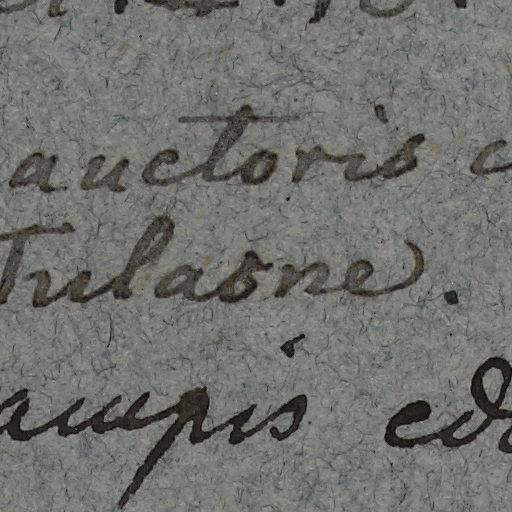 auctoris c
Tulasne.
ampis edo